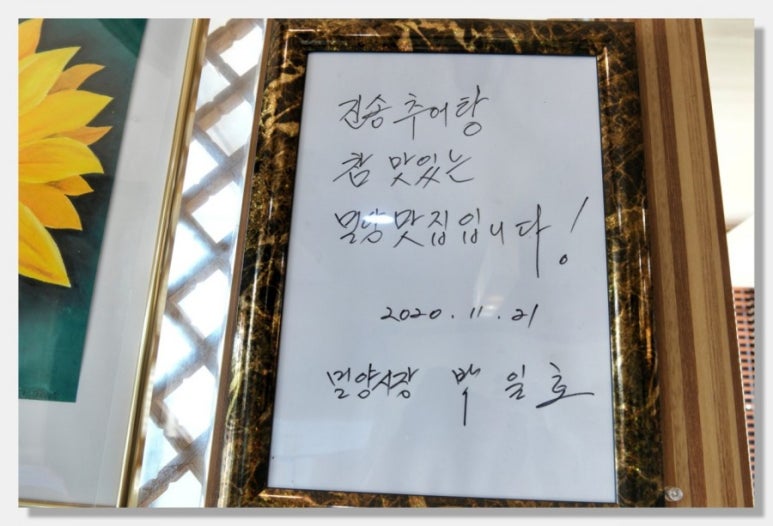 진송 추어탕
참 맛있는
밀양 맛집입니다!
2020. 11. 21
밀양시장 박일호